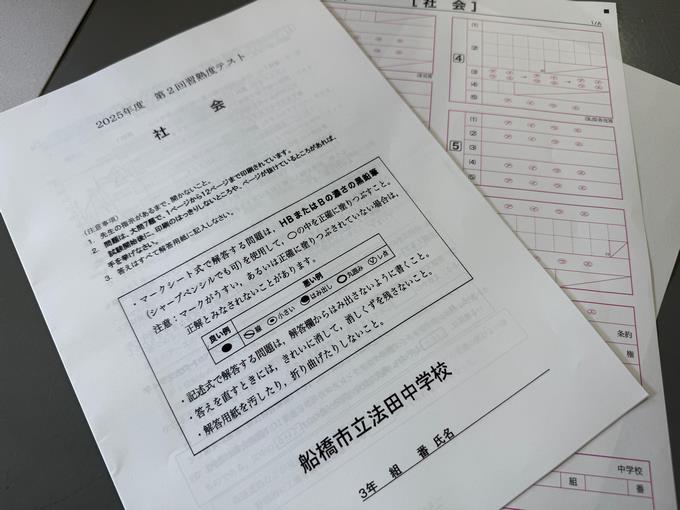 2025年度 第2回習熟度テスト
社 会
(注意事項)
1. 先生の指示があるまで、開かないこと。
2. 問題は、大問7題で、1ページから12ページまで印刷されています。
試験開始後に、印刷のはっきりしないところや、ページが抜けているところがあれば、
手を挙げなさい。
3. 答えはすべて解答用紙に記入しなさい。
・マークシート式で解答する問題は、HBまたはBの濃さの黒鉛筆
(シャープペンシルでも可)を使用して、○の中を正確に塗りつぶすこと。
注意:マークがうすい、あるいは正確に塗りつぶされていない場合は、
正解とみなされないことがあります。
良い例 悪い例
線 小さい はみ出し 丸囲み レ点
・記述式で解答する問題は、解答欄からはみ出さないように書くこと。
・答えを直すときには、きれいに消して、消しくずを残さないこと。
・解答用紙を汚したり、折り曲げたりしないこと。
船橋市立法田中学校
3年 組 番 氏名
[社 会]
1/A
4
(1)
(2)
(3)
(4)
(5)
5
(1)
(2)
(3)
(4)
(5)
条約
権
中学校
組 番